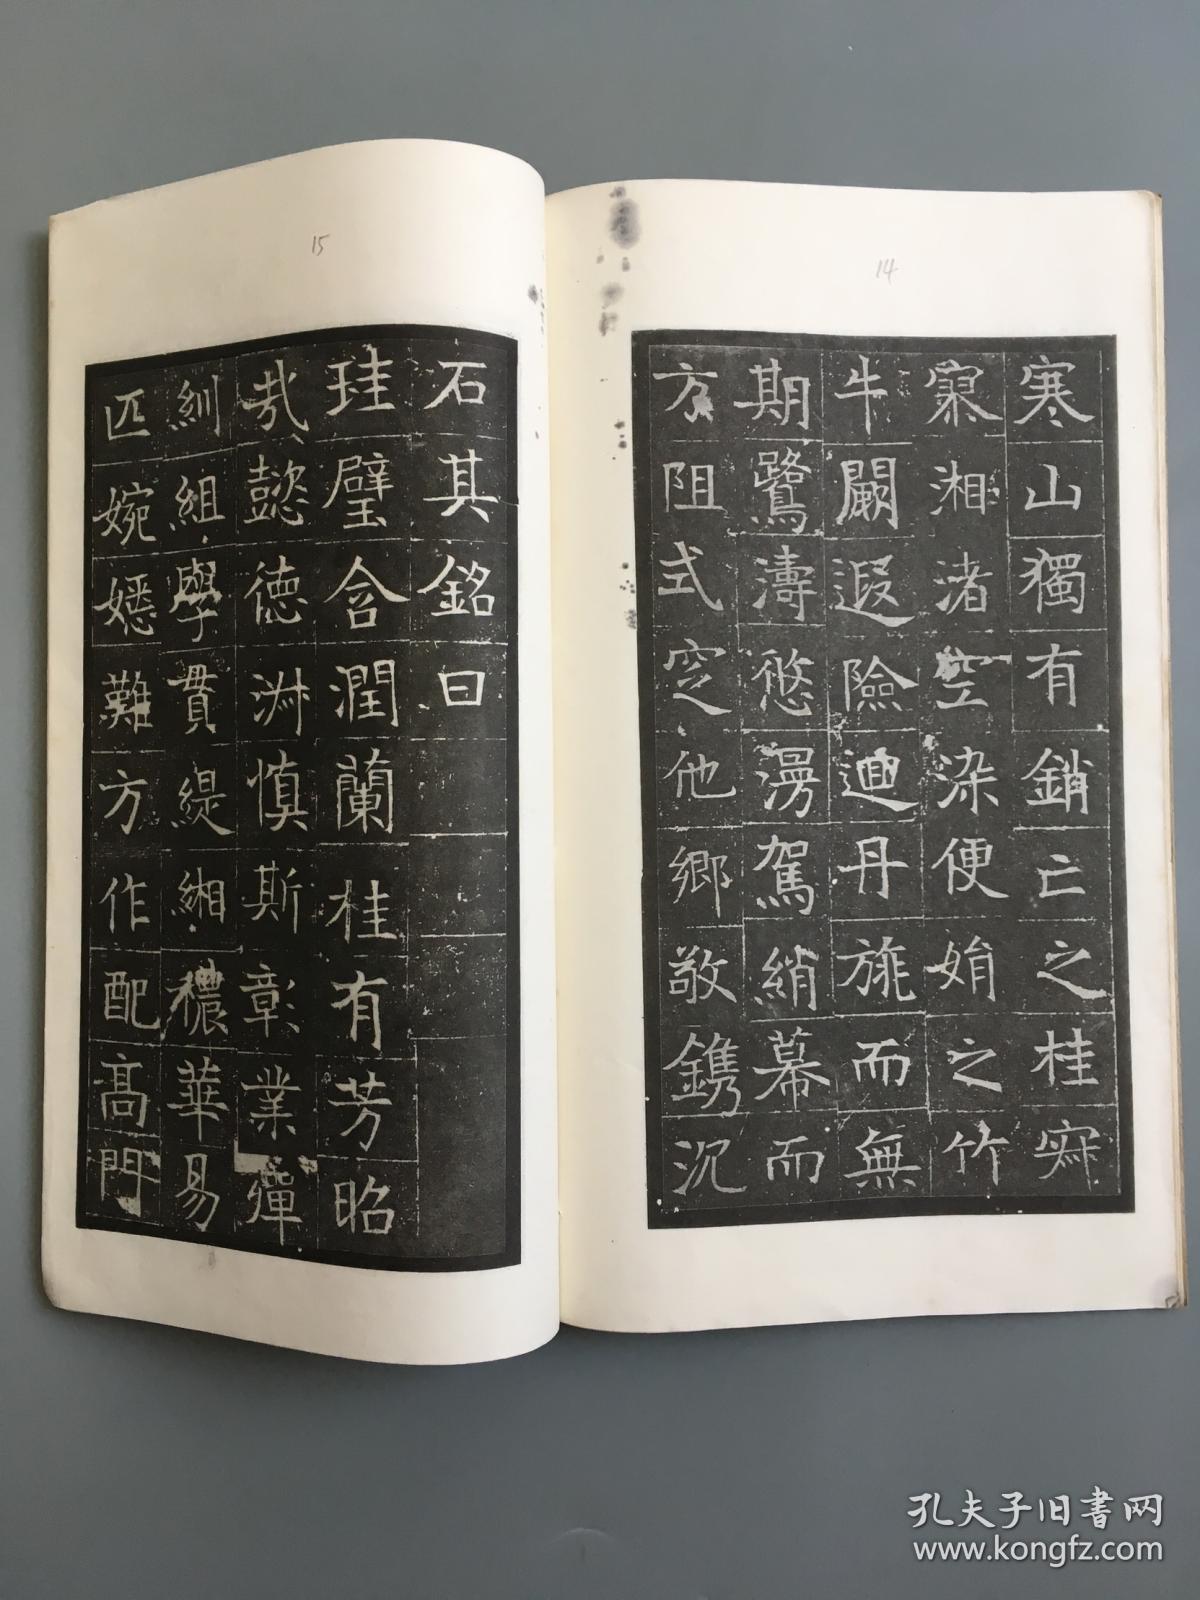 14
寒山獨有銷亡之桂寂
寥湘渚空染便娟之竹
牛闕遐險迴丹旐而無
期鷺濤悠漫駕綃幕而
方阻式窆他鄉敬鐫沉
15
石其銘曰
珪璧含潤蘭桂有芳昭
哉懿德淑慎斯彰業殫
紃組學貫緹緗穠華易
匹婉嫕難方作配高門
孔夫子旧书网
www.kongfz.com